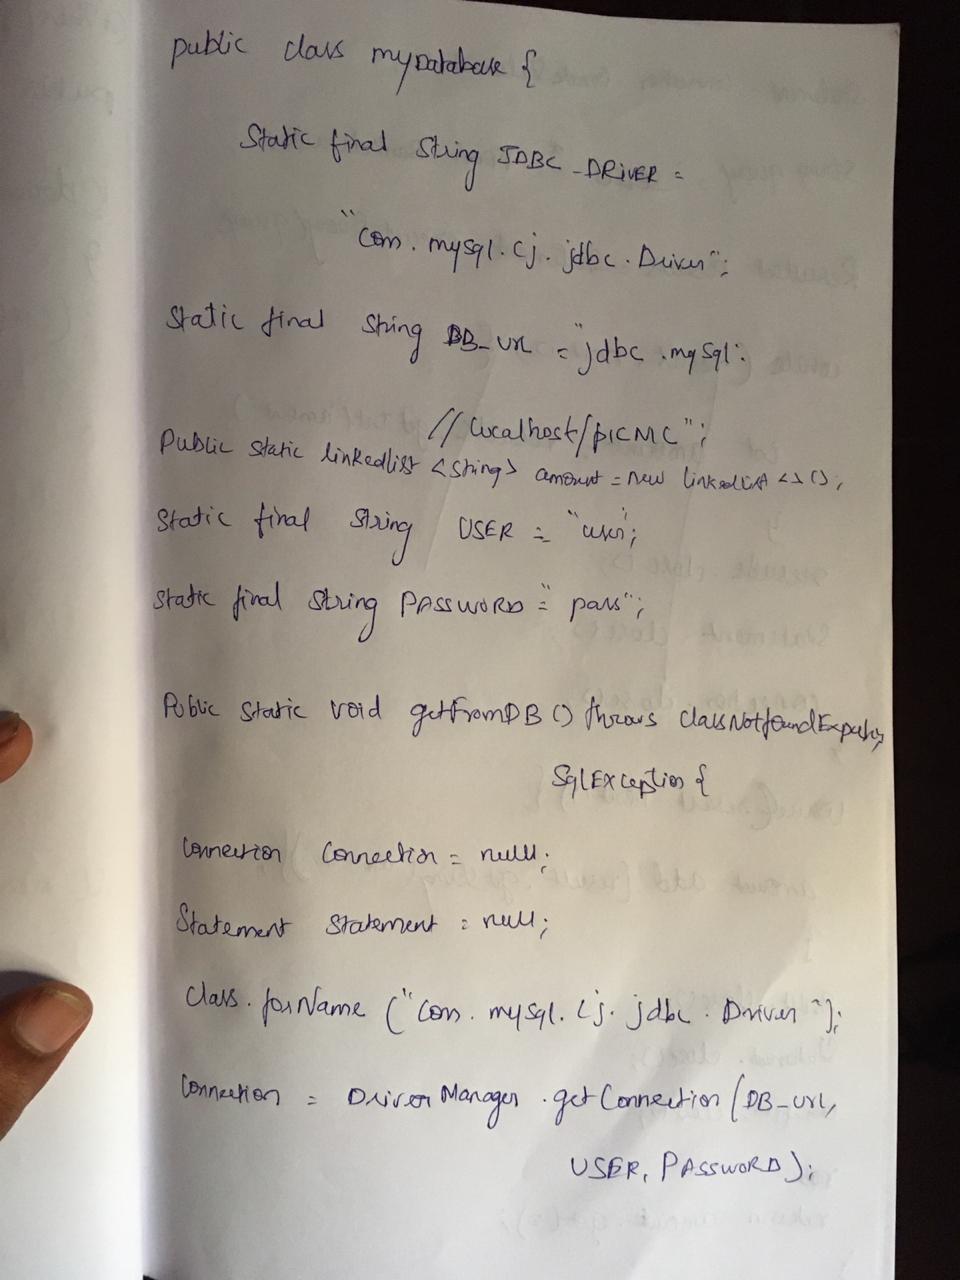 public class myDatabase {
Static final String JDBC_DRIVER =
"com.mysql.cj.jdbc.Driver";
Static final String DB_URL = "jdbc.mysql:
//localhost/picmc";
Public static linkedlist <String> amount = new linkedlist <> ();
Static final String USER = "user";
Static final String PASSWORD = "pass";
Public static void getFromDB () throws classNotfoundException,
SqlException {
Connection Connection = null;
Statement Statement = null;
Class.forName ("com.mysql.cj.jdbc.Driver");
Connection = DriverManager.getConnection (DB_URL,
USER, PASSWORD);